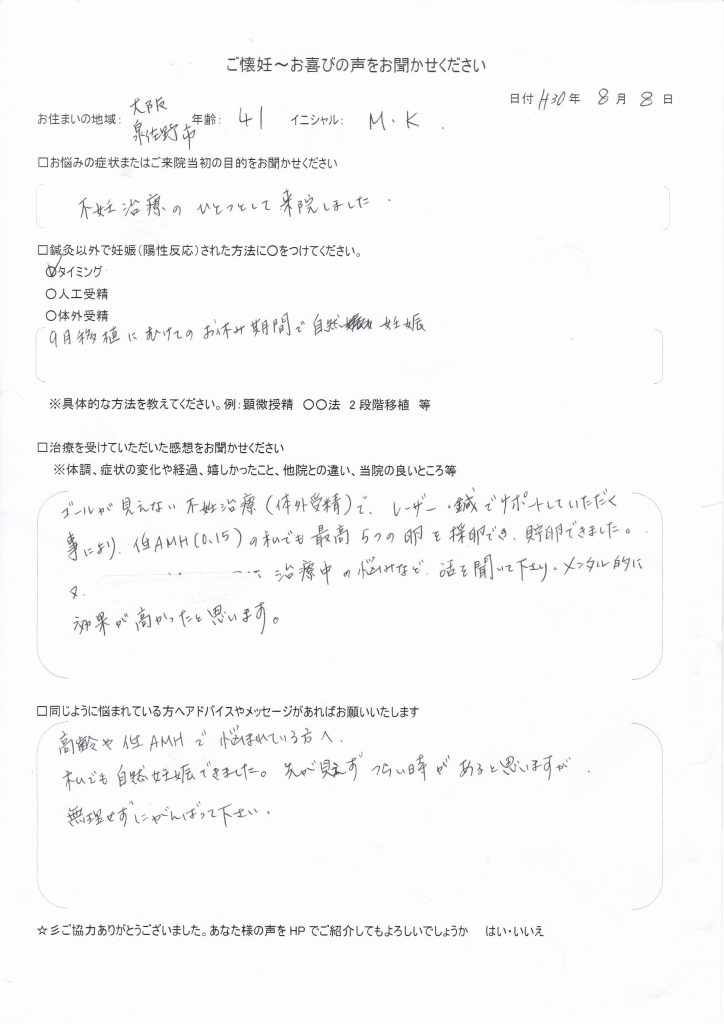 ご懐妊～お喜びの声をお聞かせください
日付 H30 年 8 月 8 日
お住まいの地域: 大阪 泉佐野市 年齢: 41 イニシャル: M.K.
□お悩みの症状またはご来院当初の目的をお聞かせください
不妊治療のひとつとして来院しました.
□鍼灸以外で妊娠(陽性反応)された方法に○をつけてください。
○タイミング
○人工受精
○体外受精
9月移植にむけてのお休み期間で自然 妊娠
※具体的な方法を教えてください。例:顕微授精 ○○法 2段階移植 等
□治療を受けていただいた感想をお聞かせください
※体調、症状の変化や経過、嬉しかったこと、他院との違い、当院の良いところ等
ゴールが見えない不妊治療(体外受精)で、レーザー・鍼でサポートしていただく
事により、低AMH(0.15)の私でも最高5つの卵を採卵でき、貯卵できました。
又. 治療中の悩みなど、話を聞いて下さり、メンタル的に
効果が高かったと思います。
□同じように悩まれている方へアドバイスやメッセージがあればお願いいたします
高齢や低AMHで悩まれている方へ.
私でも自然妊娠できました。先が見えずつらい時があると思いますが、
無理せずにがんばって下さい。
☆彡ご協力ありがとうございました。あなた様の声をHPでご紹介してもよろしいでしょうか はい・いいえ